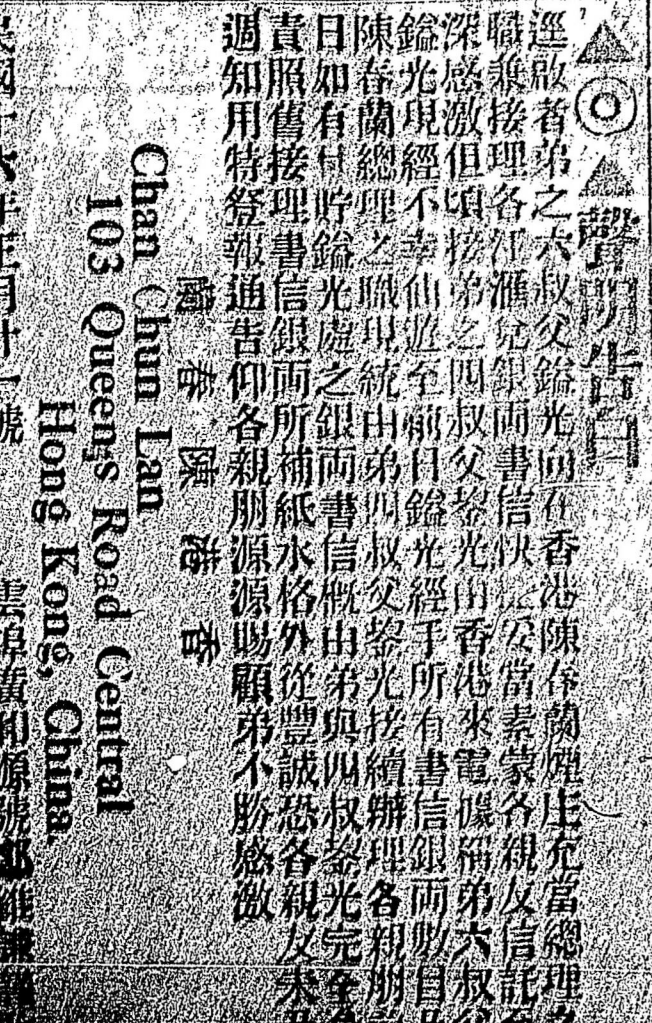 聲明告白
逕啟者弟之六叔父鎰光向在香港陳春蘭煙庄充當總理之
職兼接理各江滙兌銀両書信快 妥當素蒙各親友信託
深感激但頃接弟之四叔父 光由香港來電據稱弟六叔父
鎰光現經不幸仙遊至前日鎰光經手所有書信銀両數目
陳春蘭總理之職現統由弟四叔父 光接續辦理各親朋
日如有付貯鎰光處之銀両書信概由弟與四叔 光完全
責照舊接理書信銀両所補紙水格外從豐誠恐各親友未
週知用特登報通告仰各親朋源源賜顧弟不勝感激
香港陳春蘭
Chan Chun Lan
103 Queens Road Central
Hong Kong, China
民國十六年正月廿一號 雲埠廣和源號 維